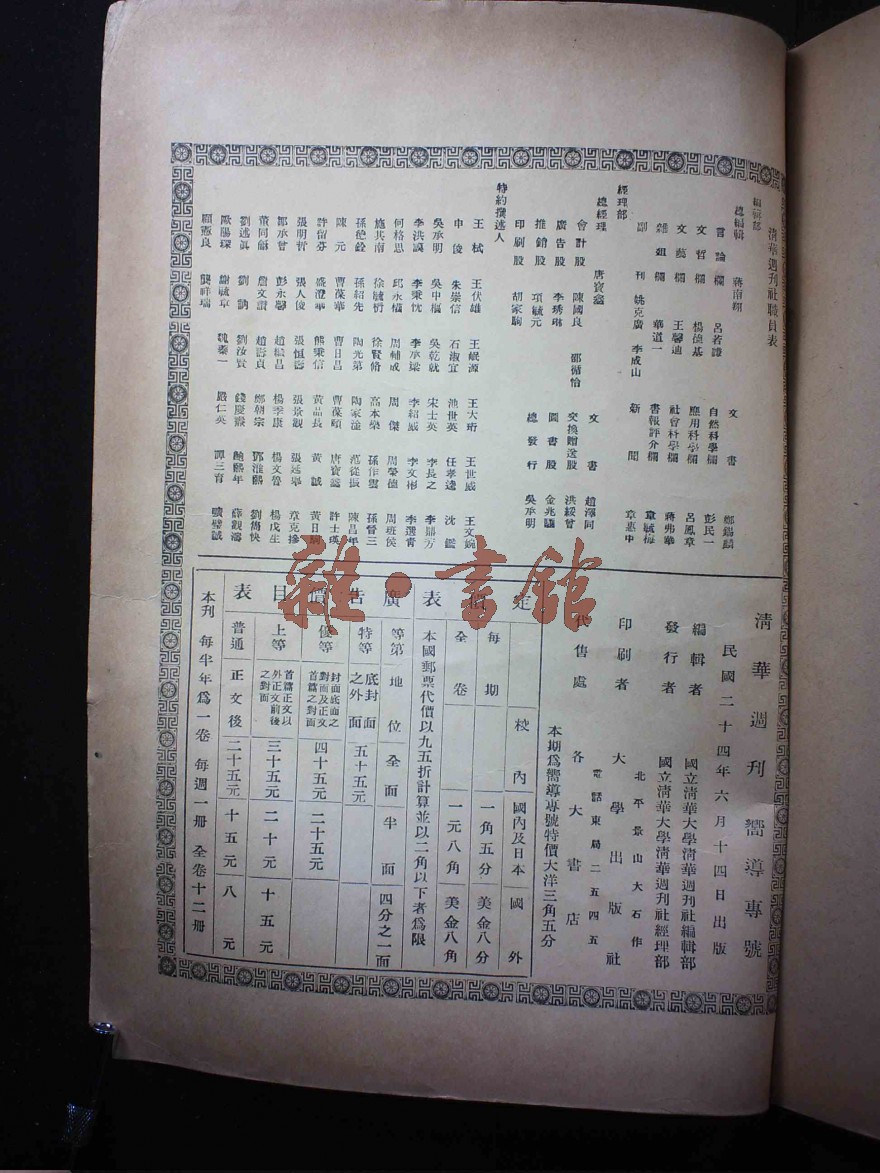 清華週刊社職員表
編輯部
總編輯 蔣南翔
言論欄 呂若謙
文哲欄 楊德基
文藝欄 王馨迪
雜俎欄 華道一
副刊 姚克廣 李成山
文書 鄭錫麟
自然科學欄 彭民一
應用科學欄 呂鳳章
社會科學欄 蔣弗華
書報評介欄 章毓梅
新聞 章惠中
經理部
總經理 唐寶鑫
會計股 陳國良
廣告股 李琇琳
推銷股 項毓元
印刷股 胡家駒
邵循恪
文書 趙澤同
交換贈送股 洪綏曾
圖書股 金兆驤
總發行 吳承明
特約撰述人
王栻 王伏雄 王岷源 王大珩 王世威 王文婉
申俊 朱崇信 石淑宜 池世英 任孝逵 沈鑑
吳承明 吳中樞 吳乾就 宋士英 李長之 李鼎方
李洪謨 李秉忱 李承梁 李紹威 李文彬 李選青
何格恩 邱永橘 周輔成 周傑 周榮德 周班侯
施其南 徐毓枬 徐賢脩 高本樂 孫作雲 孫晉三
孫艳銓 孫紹先 陶光第 陶家淦 范從振 陳昌年
陳元 曹葆華 曹日昌 曹葆頤 唐寶鑫 許士瑛
許留芬 盛澄華 熊秉信 黃品長 黃誠
張明哲 張人俊 張恒 張景觀 張延寧 章克摻
鄒承曾 彭永馨 趙繼昌 楊季康 楊文骨 楊戊生
董同龢 詹文滸 趙燾貞 鄭朝宗 鄧淮熙 劉雋快
劉述真 劉訥 劉汝賢 錢慶燾 鮑熙年 薛觀濤
歐陽琛 謝毓章 魏蓁一 嚴仁英 譚三育 曠璧誠
顧憲良 龔祥瑞
清華週刊嚮導專號
民國二十四年六月十四日出版
編輯者 國立清華大學清華週刊社編輯部
發行者 國立清華大學清華週刊社經理部
印刷者 北平景山大石作
大學出版社
電話東局二五四五
代售處 各大書店
本期為嚮導專號特價大洋三角五分
定價表
校內 國內及日本 國外
每期 一角五分 美金八分
全卷 一元八角 美金八角
本國郵票代價以九五折計算並以二角以下者為限
廣告價目表
等第 地位 全面 半面 四分之一面
特等 底封面之外面 五十五元
優等 封面底面之對面及正文首篇之對面 四十五元 二十五元
上等 首篇正文以外正文前後之對面 三十五元 二十元 十五元
普通 正文後 二十五元 十五元 八元
本刊每半年為一卷 每週一冊 全卷十二冊
雜·書館